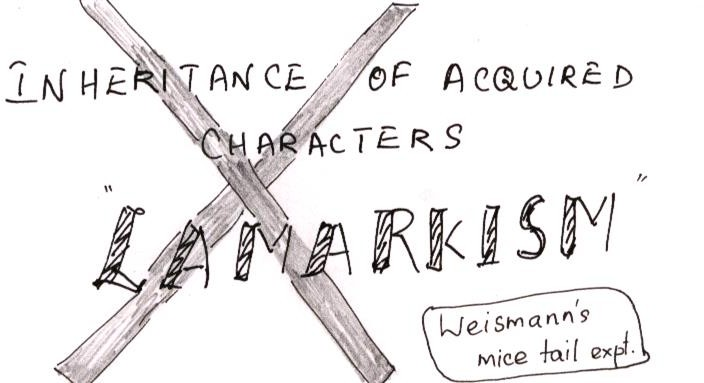 INHERITANCE OF ACQUIRED
CHARACTERS
"LAMARKISM"
Weismann's
mice tail expt.